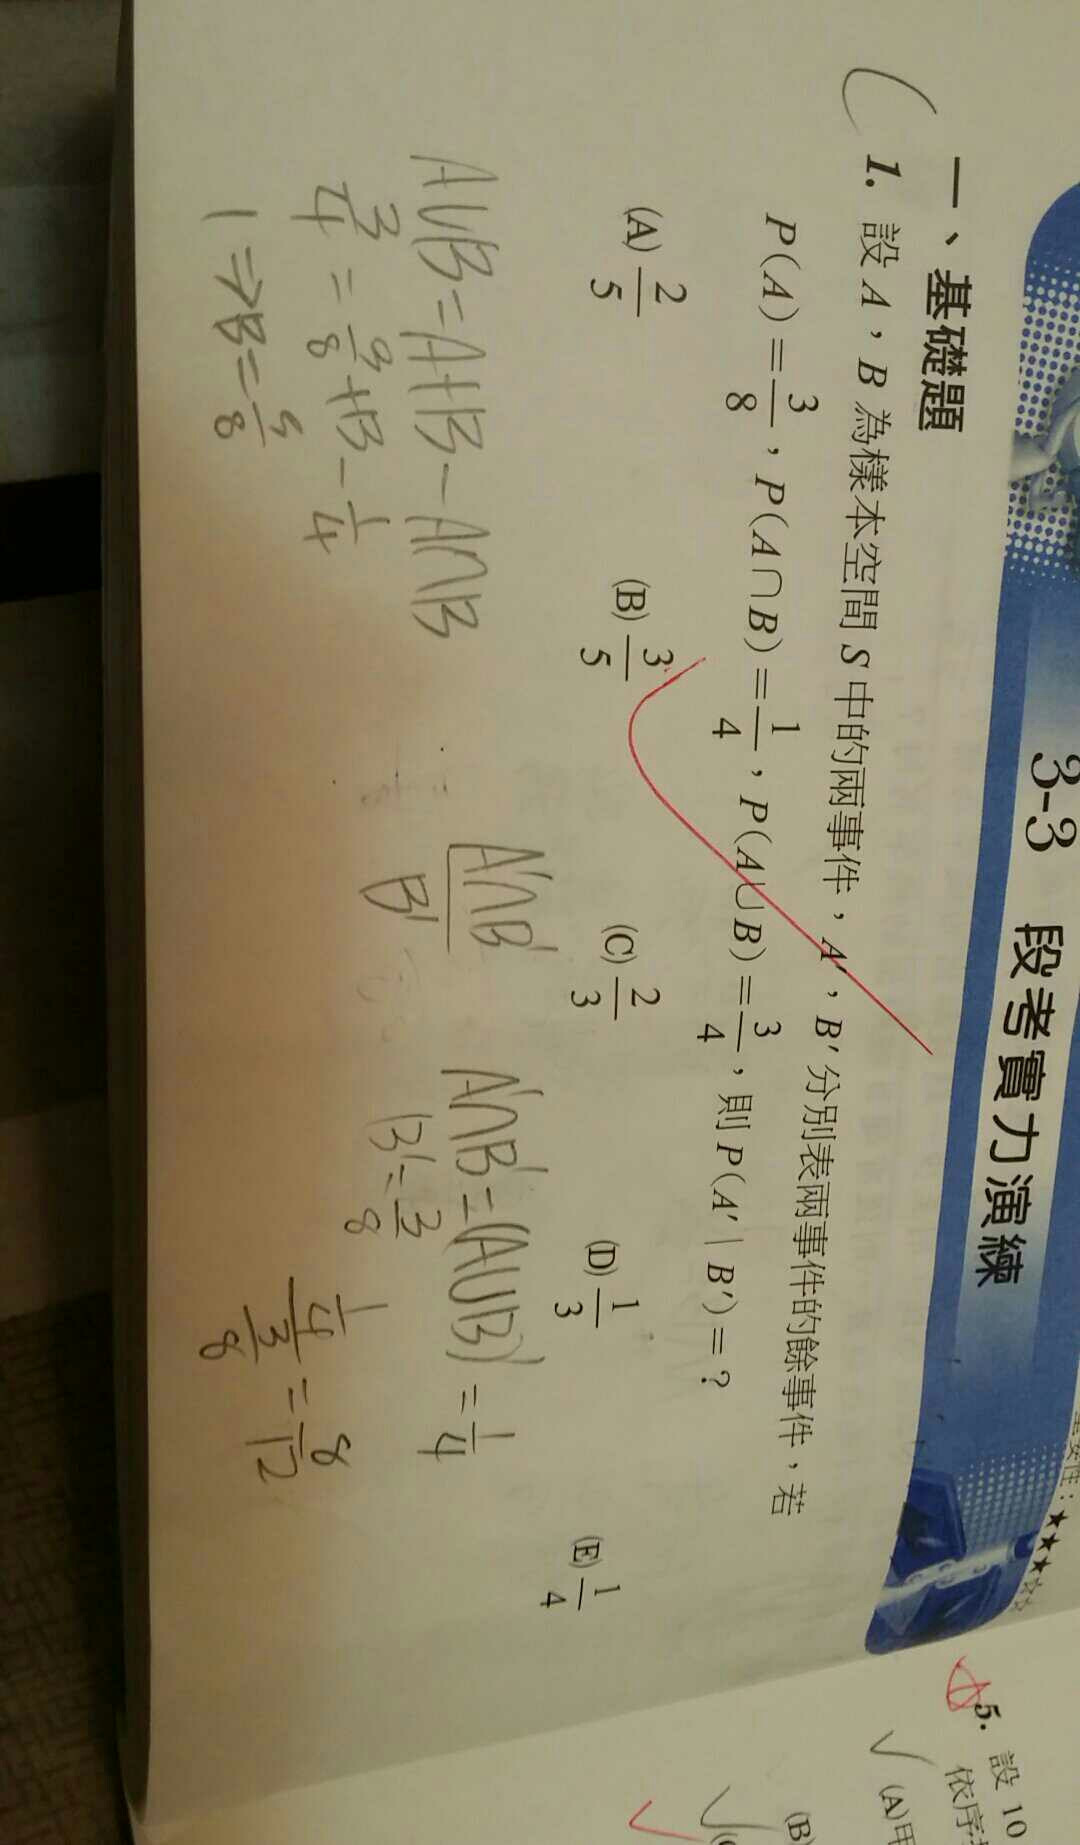 3-3 段考實力演練
一、基礎題
1. 設 A,B 為樣本空間 S 中的兩事件,A′,B′分別表兩事件的餘事件,若
P(A)=3/8,P(A∩B)=1/4,P(A∪B)=3/4,則 P(A′|B′)=?
(A) 2/5 (B) 3/5 (C) 2/3 (D) 1/3 (E) 1/4
A∪B=A+B-A∩B
3/4=3/8+B-1/4
1⇒B=5/8
A′∩B′/B′
A′∩B′=(A∪B)′=1/4
B′=3/8
1/4/3/8=8/12
5. 設 10
依序
(A)用
(B)